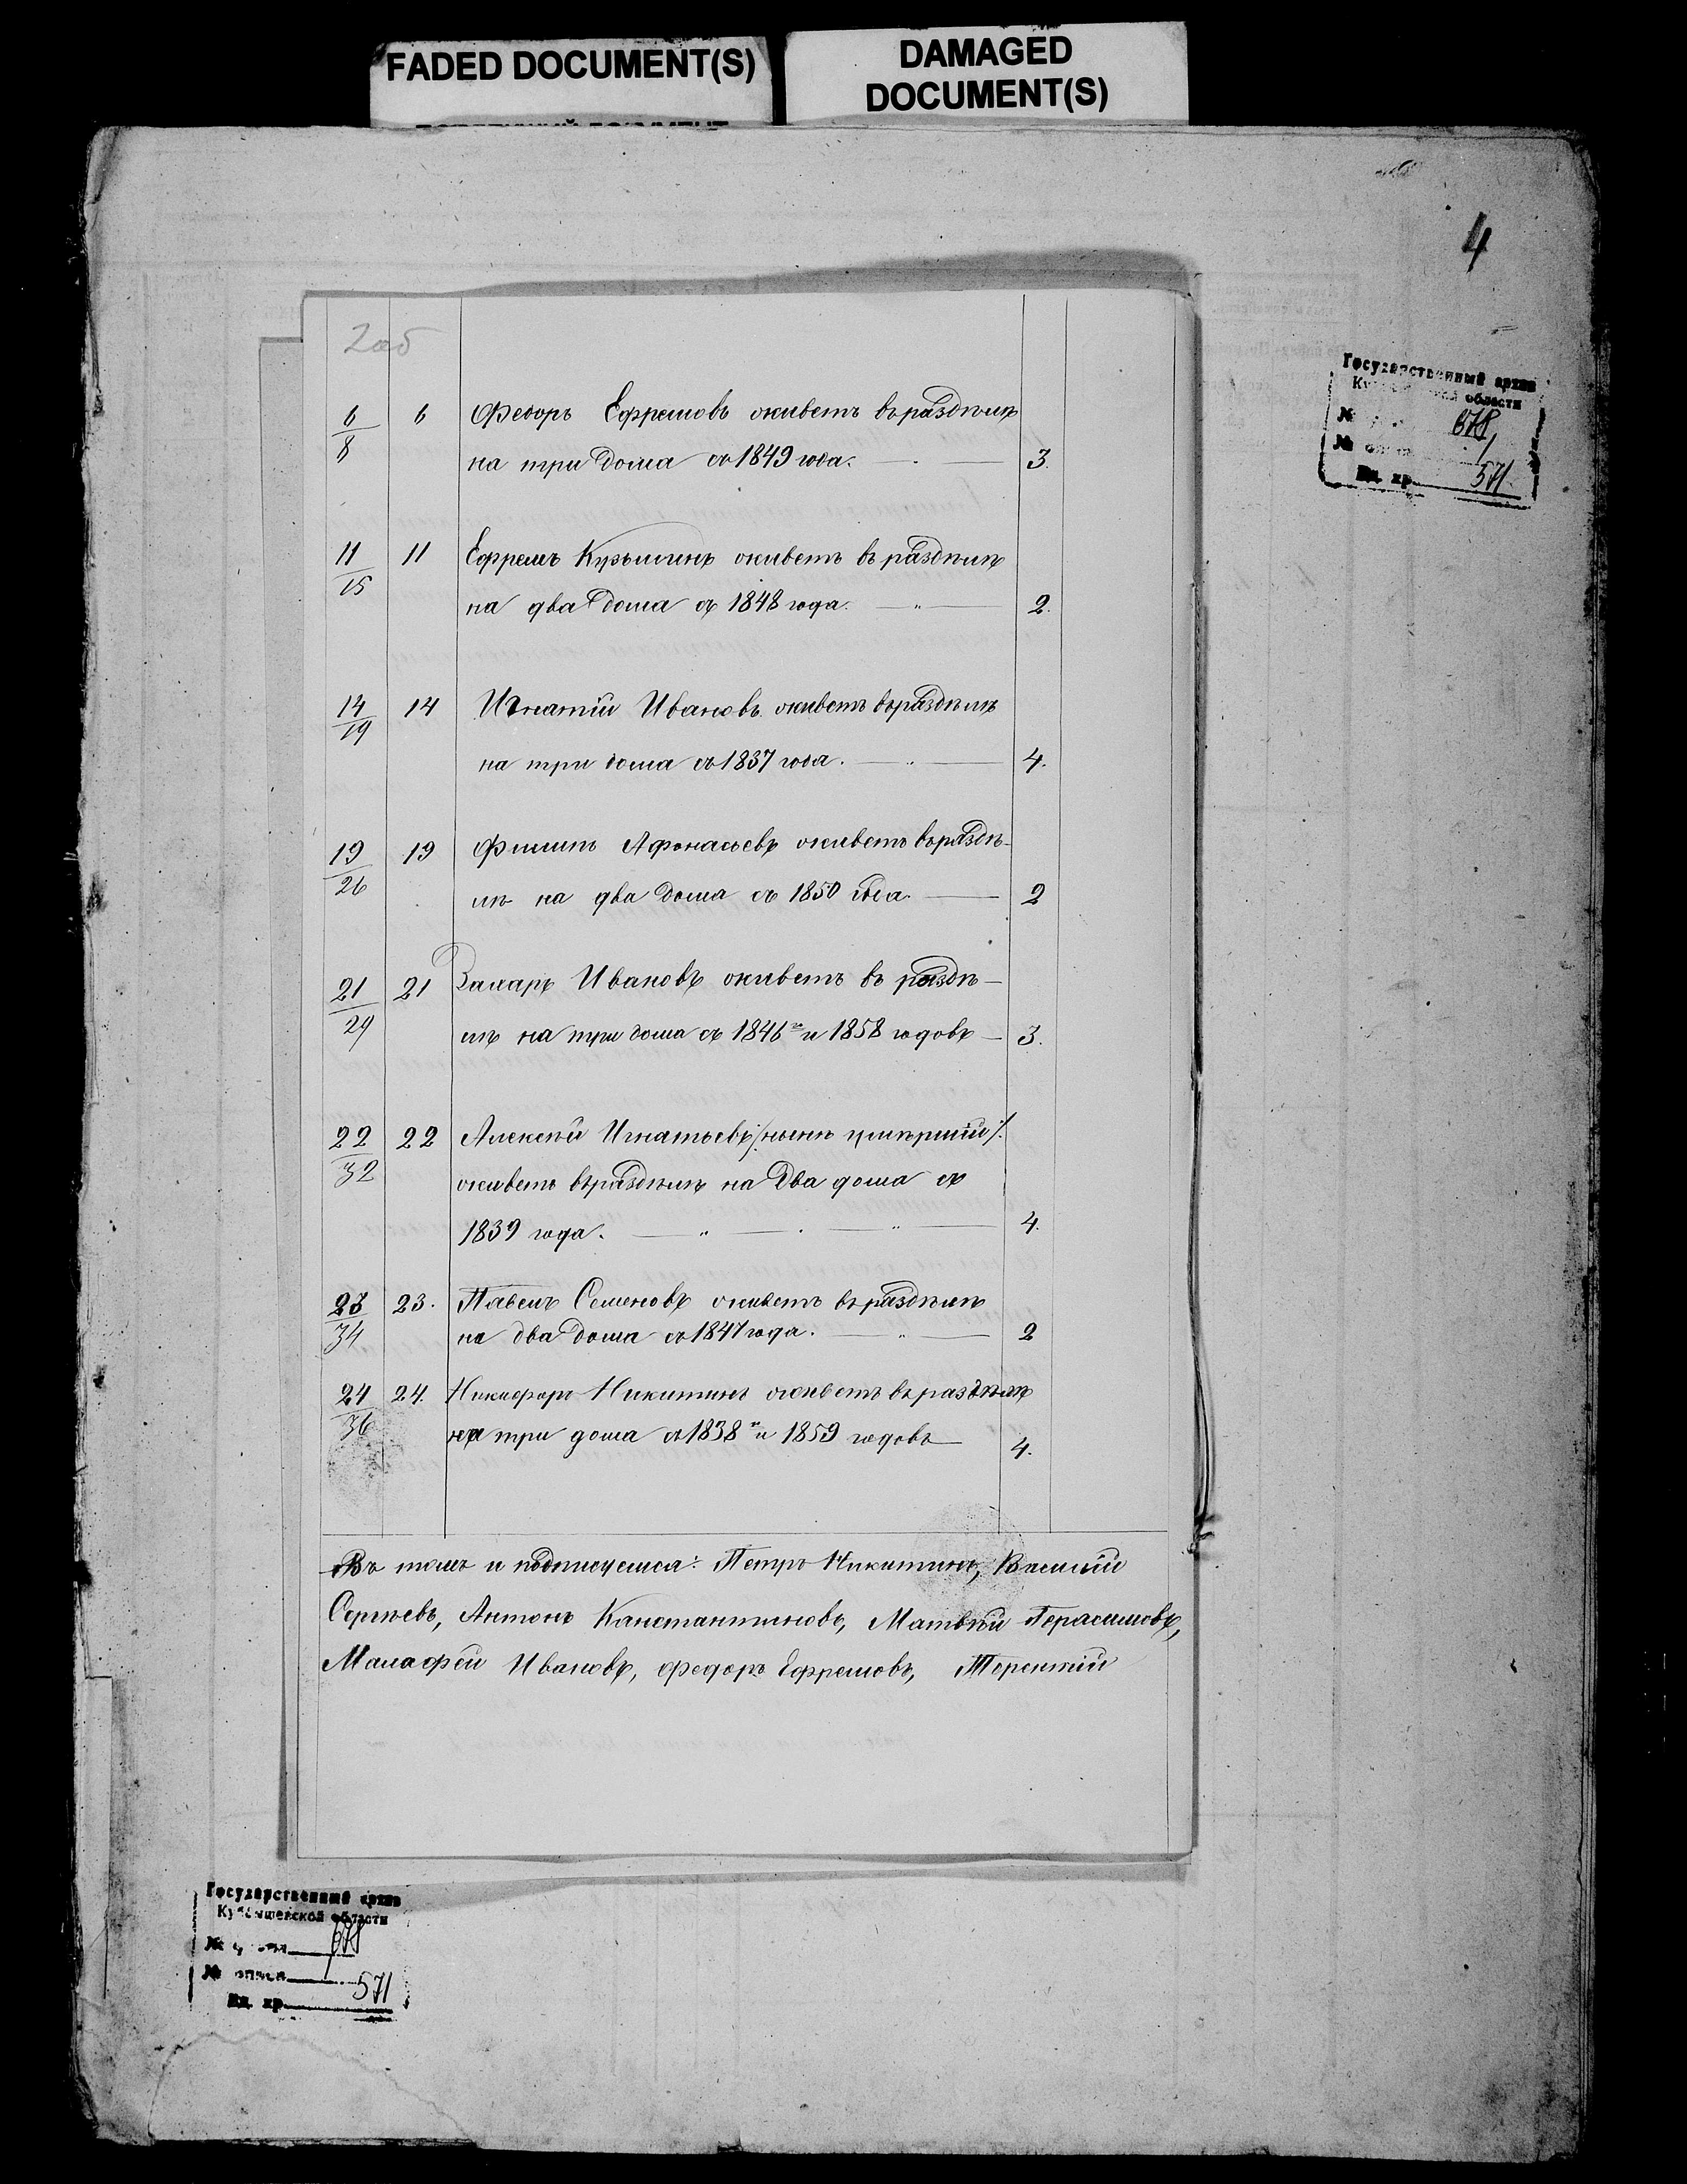 FADED DOCUMENT(S)
DAMAGED
DOCUMENT(S)
4
2об
Государственный архив
области
№ 678
№ 1
Ед. хр. 571
6/8 6 Федоръ Ефремовъ живетъ въ раздѣлѣ
на три дома съ 1849 года. 3.
11/15 11 Ефремъ Кузьминъ живетъ въ раздѣлѣ
на два дома съ 1848 года. 2.
14/19 14 Игнатій Ивановъ живетъ въ раздѣлѣ
на три дома съ 1837 года. 4.
19/26 19 Филипъ Афонасьевъ живетъ въ раздѣ-
лѣ на два дома съ 1850 года. 2
21/29 21 Захаръ Ивановъ живетъ въ раздѣ-
лѣ на три дома съ 1846го и 1858 годовъ 3.
22/32 22 Алексѣй Игнатьевъ /:нынѣ умѣршій:/
живетъ въ раздѣлѣ на два дома съ
1839 года. 4.
23/34 23. Павелъ Семеновъ живетъ въ раздѣлѣ
на два дома съ 1847 года. 2
24/36 24. Никифоръ Никитинъ живетъ въ раздѣлѣ
на три дома съ 1838го и 1859 годовъ 4.
Въ томъ и подписуемся: Петръ Никитинъ, Василій
Сергѣевъ, Антонъ Канстантиновъ, Матвѣй Герасимовъ,
Малафей Ивановъ, Федоръ Ефремовъ, Терентій
Государственный архив
Куйбышевской области
№ фонда 678
№ описи 1
Ед. хр. 571